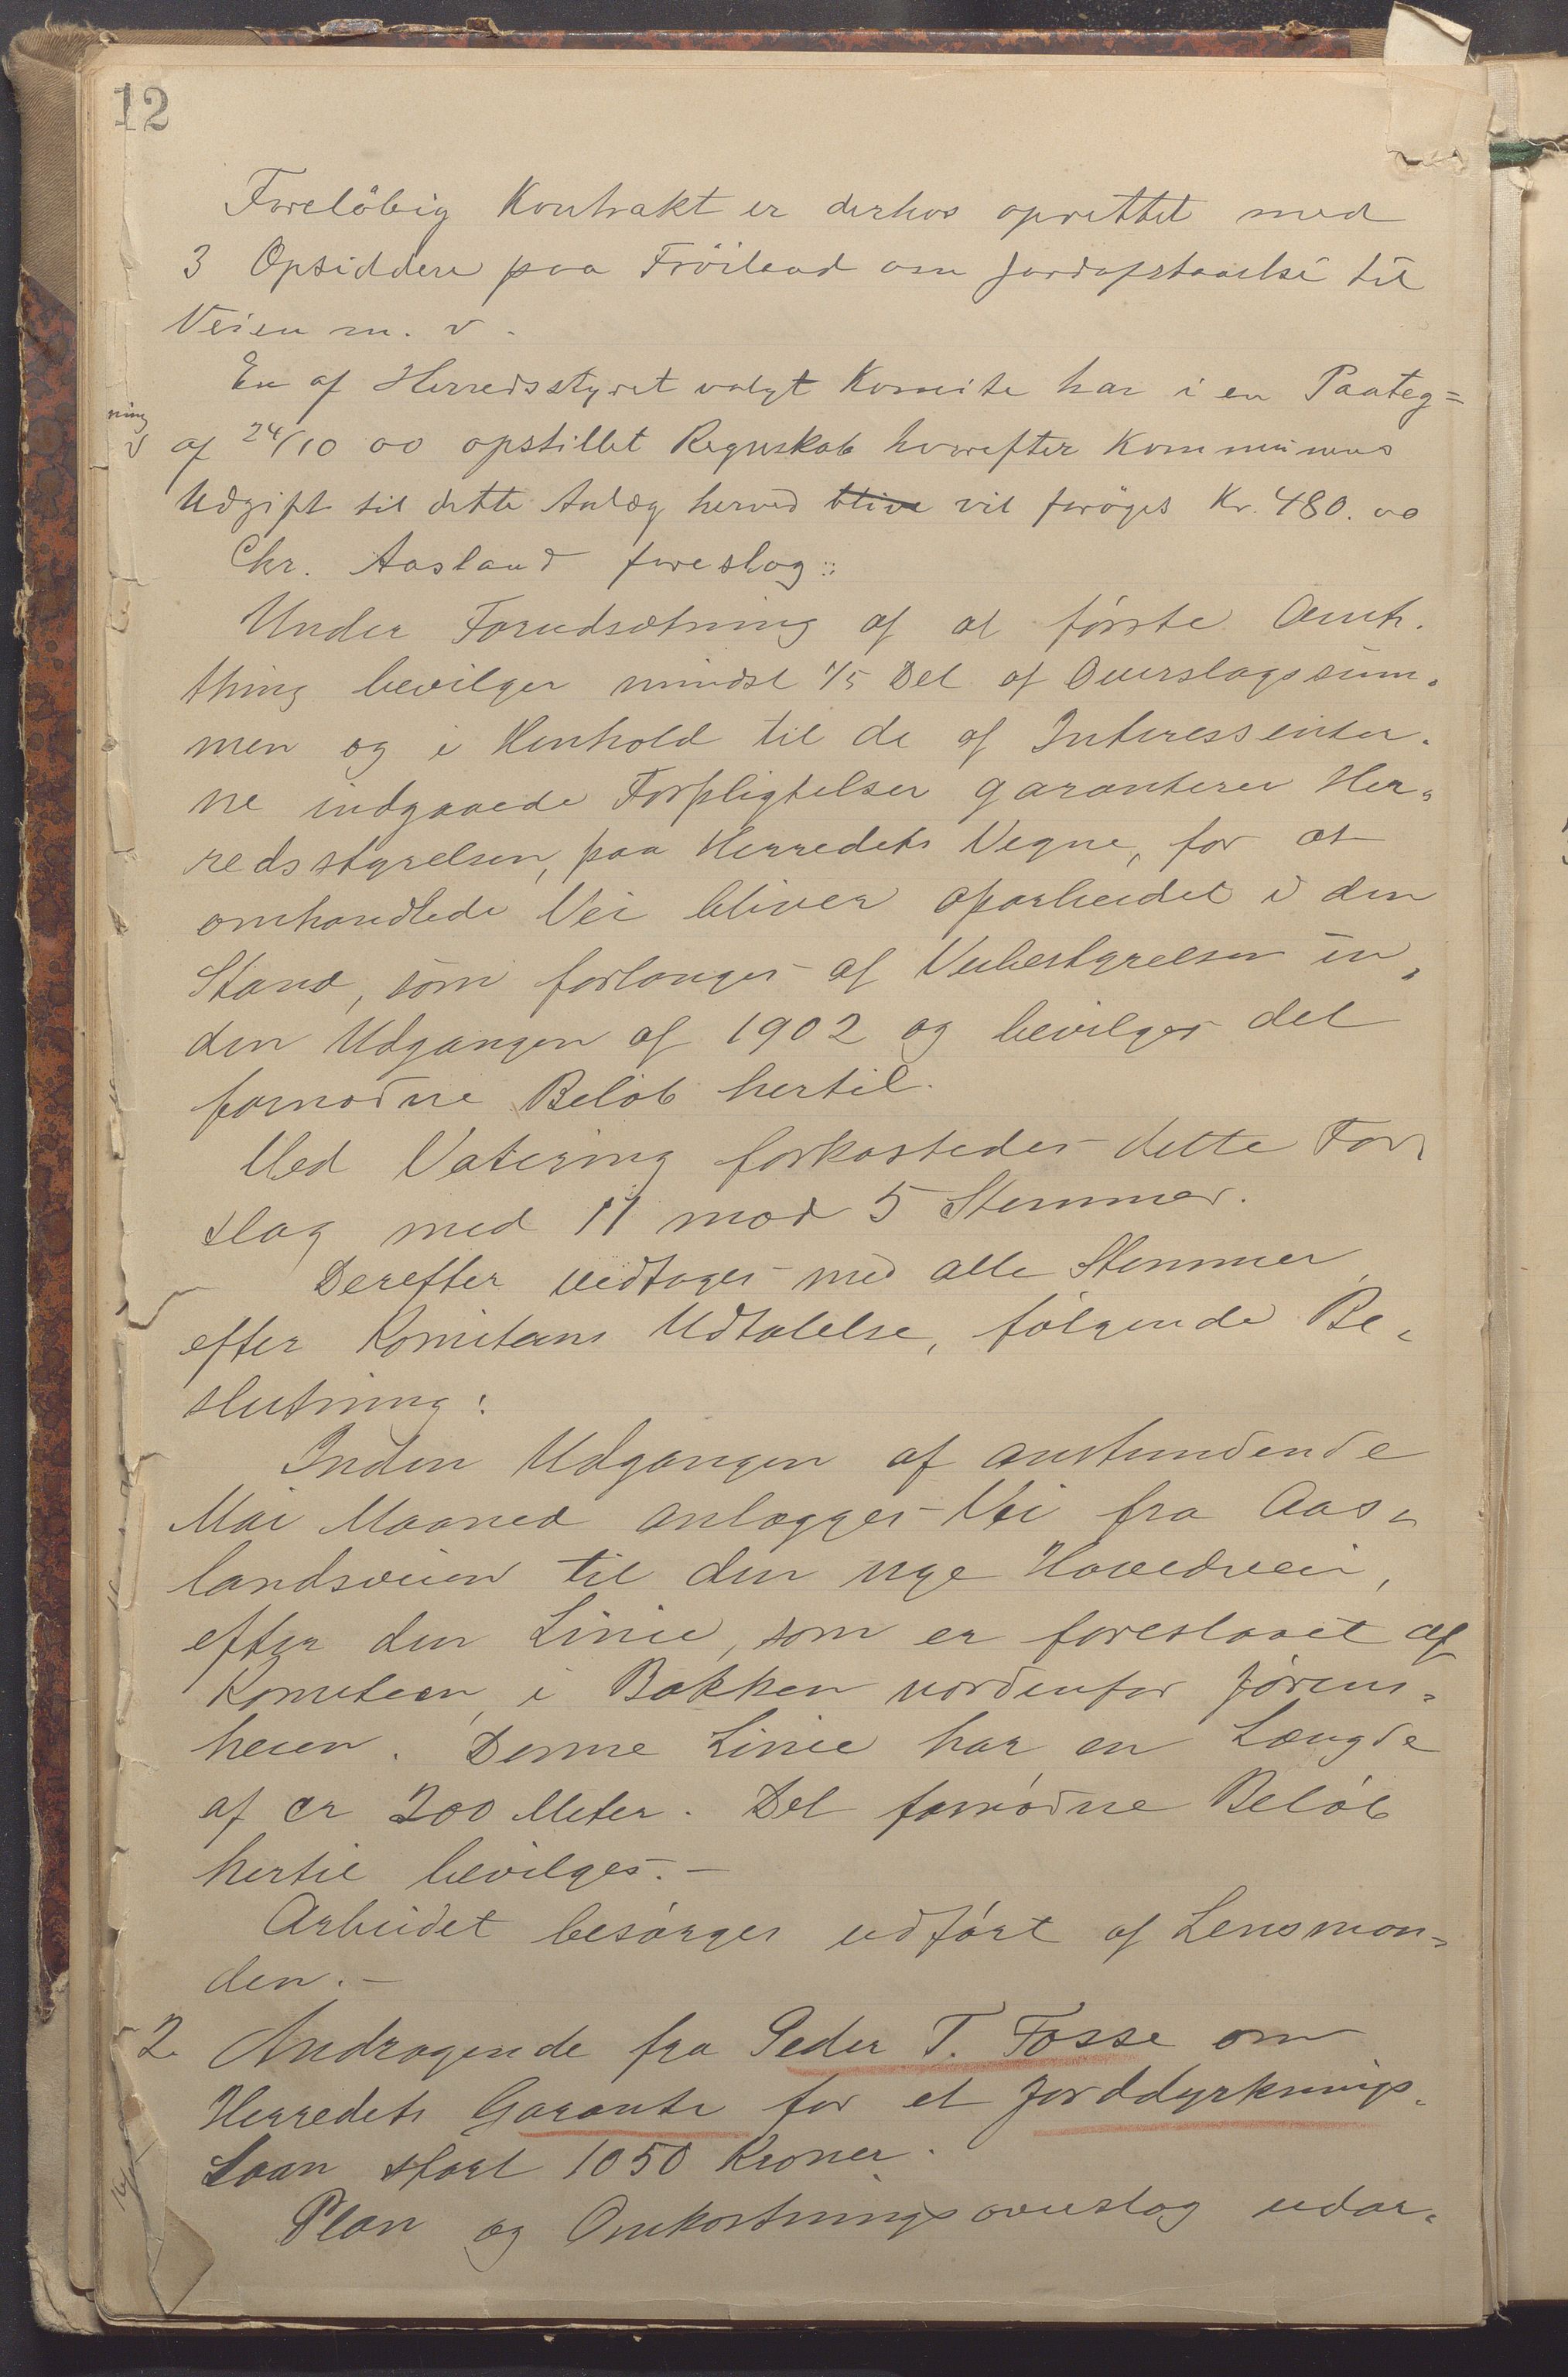 12
Foreløbig Kontrakt er derhos oprettet med
3 Opsiddere paa Fröiland om Jordafstaaelse til
Veien m. v.
En af Herredsstyret valgt Komite har i en Paateg=
ning
af 24/10 00 opstillet Regnskab hvorefter Kommunens
Udgift til dette Anlæg herved blive vil forøges Kr. 480.00
Chr. Aasland foreslog:
Under Forudsætning af at første Amts.
thing bevilger mindst 1/5 Del af Overslagssum.
men og i Henhold til de af Interessenter.
ne indgaaede Forpligtelser garanterer Her.
redsstyrelsen, paa Herredets Vegne, for at
omhandlede Vei bliver oparbeidet i den
Stand, som forlanges af Veibestyrelsen in.
den Udgangen af 1902 og bevilges det
fornødne Beløb hertil.
Ved Votering forkastedes dette For,
slag med 11 mod 5 Stemmer.
Derefter vedtoges med alle Stemmer,
efter Komiteens Udtalelse, følgende Be,
slutning:
Inden Udgangen af anstundende
Mai Maaned anlægges Vei fra Aas,
landsveien til den nye Hovedvei,
efter den Linie, som er foreslaaet af
Komiteen, i Bakken nordenfor Jørens.
heien. Denne Linie har en Længde
af ca 200 Meter. Det fornødne Beløb
hertil bevilges.-
Arbeidet besørges udført af Lensman,
den.-
2. Andragende fra Peder T. Fosse om
Herredets Garanti for et Jorddyrknings.
Laan stort 1050 Kroner.
Plan og Omkostningsoverslag udar.